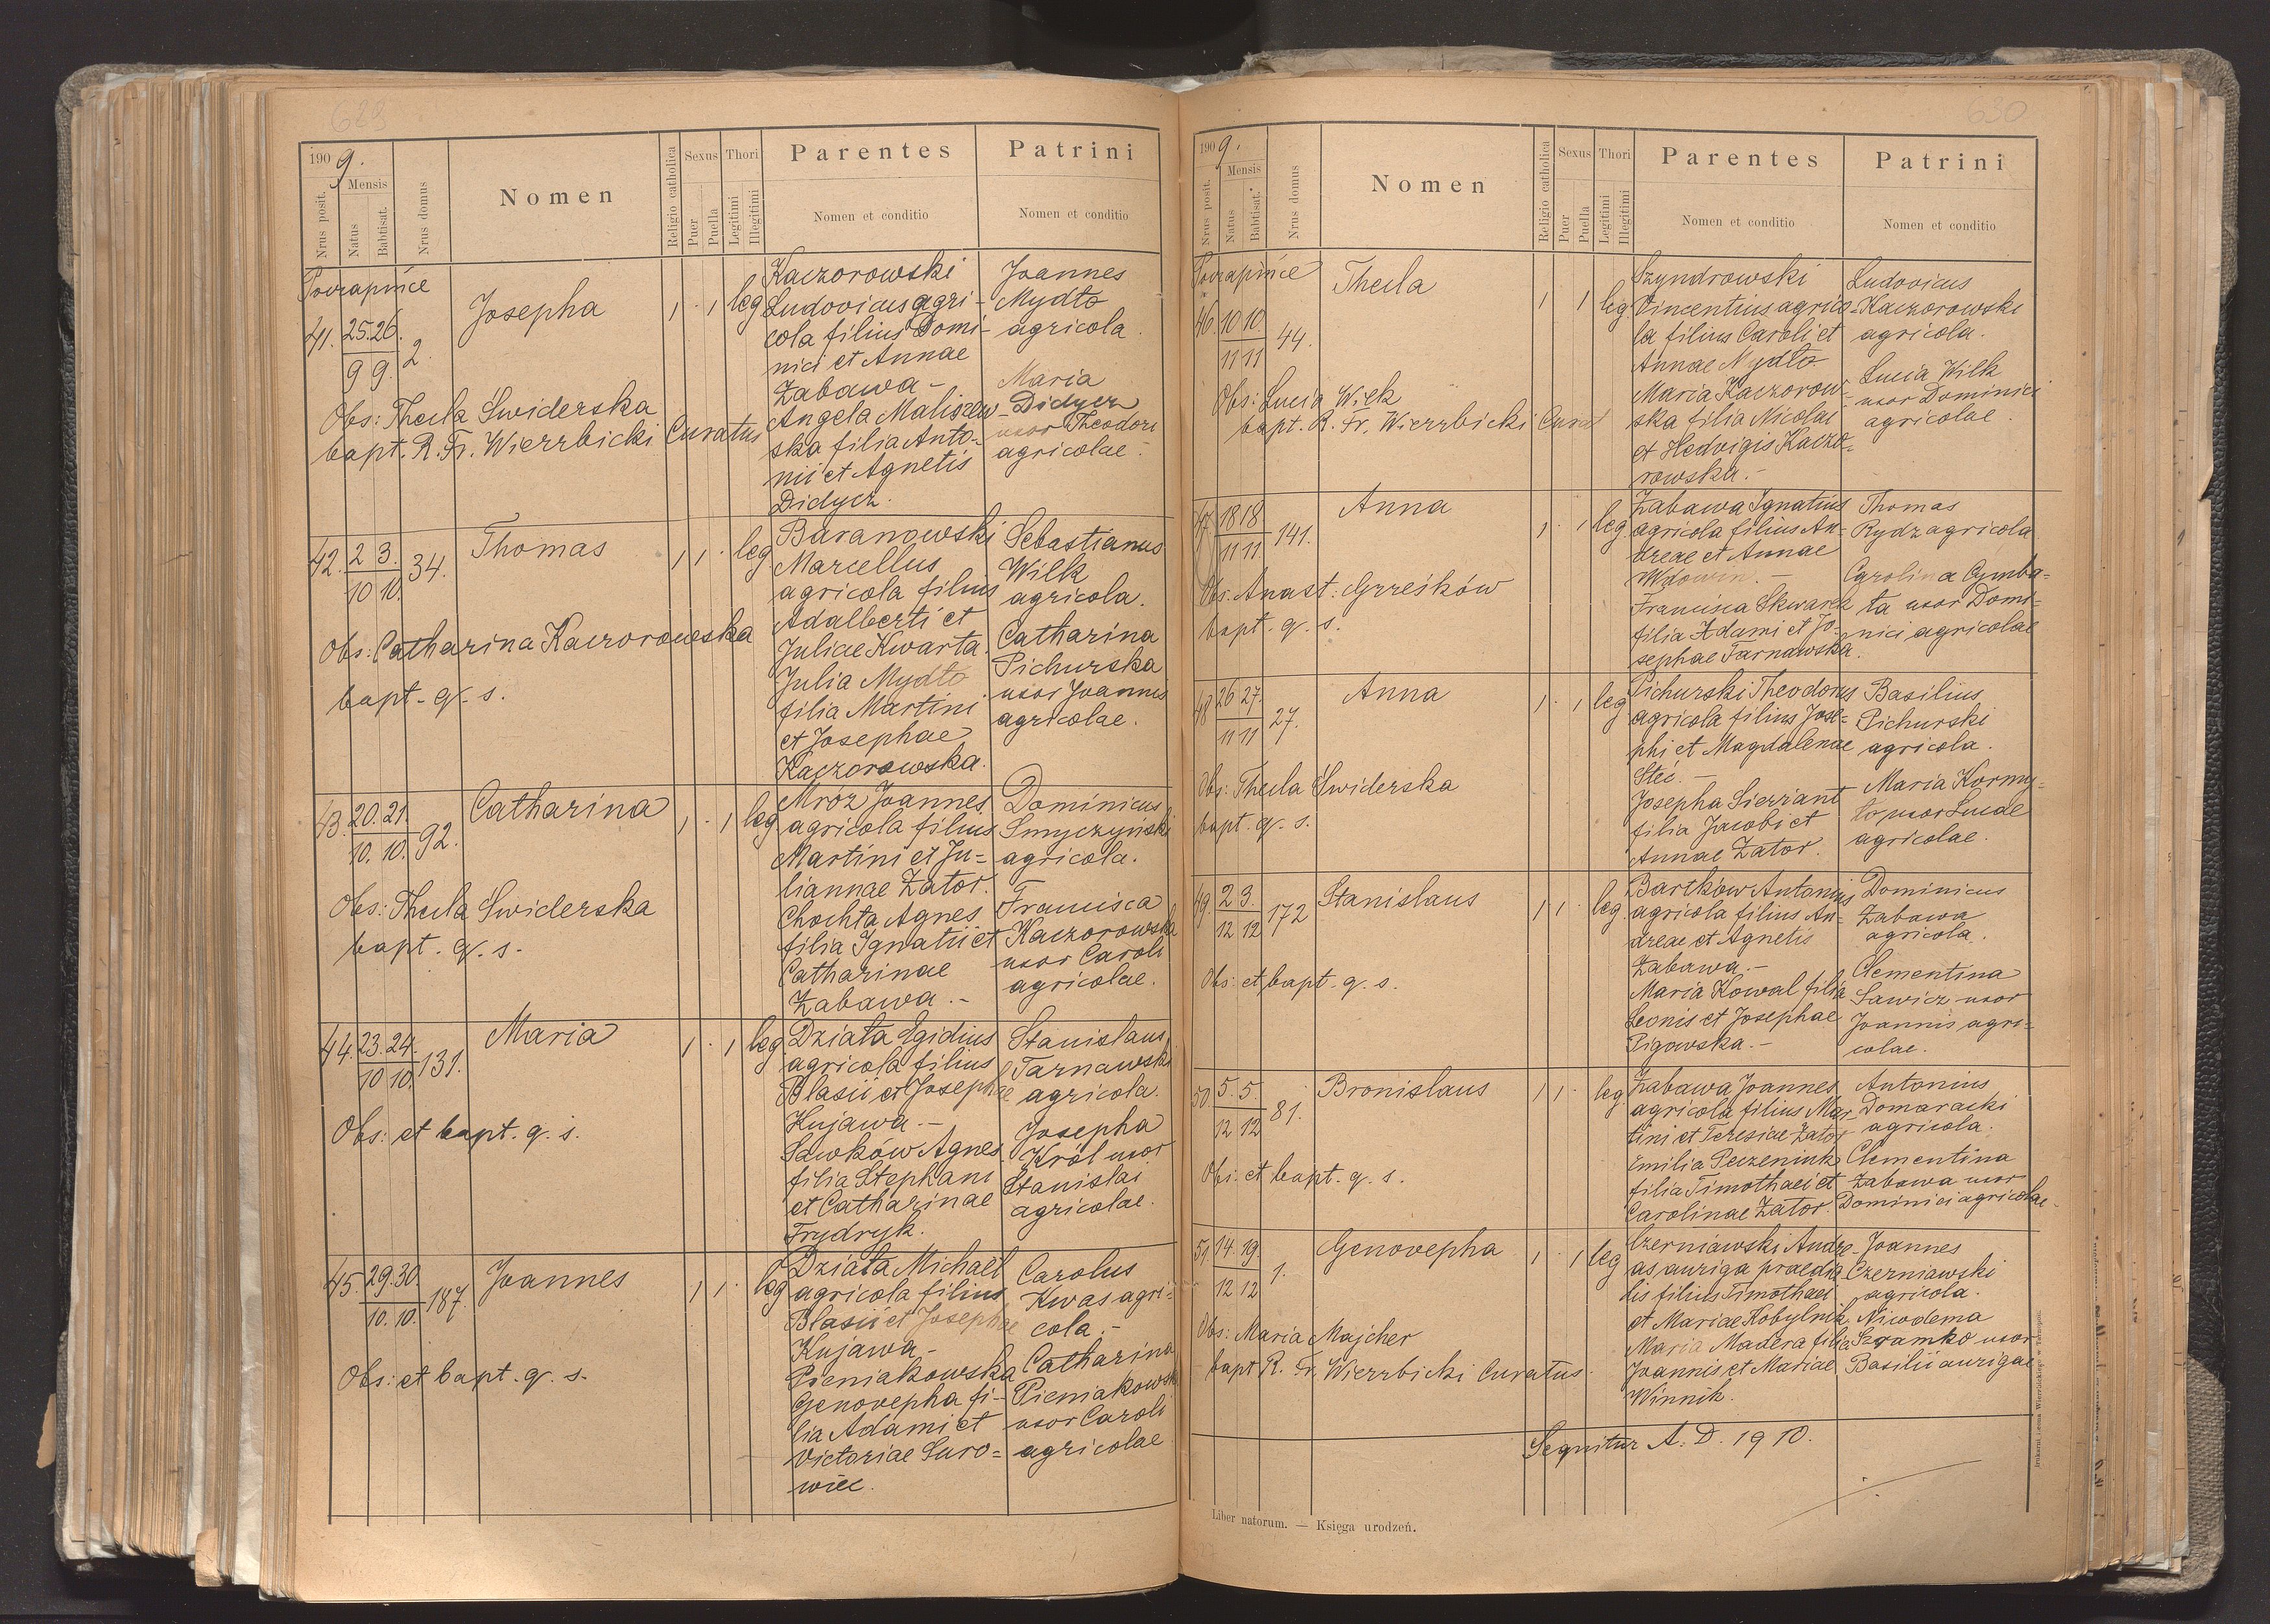 623
1909.
Nrus posit.
Mensis
Natus
Babtisat.
Nrus domus
Nomen
Religio catholica
Sexus
Puer
Puella
Thori
Legitimi
Illegitimi
Parentes
Nomen et conditio
Patrini
Nomen et conditio
41. 25. 26. 2.
9 9.
Josepha
1 · 1 leg
Kaczorowski
Ludovicus agri-
cola filius Domi-
nici et Annae
Zabawa -
Angela Maliszew-
ska filia Anto-
nii et Agnetis
Didycz.
Joannes
Mydło
agricola.
Maria
Didycz
uxor Theodori
agricolae.
Obs: Thecla Swiderska
bapt. R. Fr. Wierzbicki Curatus
42. 2 3. 34.
10 10.
Thomas
1 1 · leg
Baranowski
Marcellus
agricola filius
Adalberti et
Juliae Kwarta.
Julia Mydło
filia Martini
et Josephae
Kaczorowska.
Sebastianus
Wilk
agricola.
Catharina
Pichurska
uxor Joannis
agricolae.
Obs: Catharina Kaczorowska
bapt. q. s.
43. 20. 21. 92.
10. 10.
Catharina
1 · 1 leg
Mroz Joannes
agricola filius
Martini et Ju-
liannae Zator.
Chochta Agnes
filia Ignatii et
Catharinae
Zabawa. -
Dominicus
Smyczyński
agricola.
Francisca
Kaczorowska
uxor Caroli
agricolae.
Obs: Thecla Swiderska
bapt. q. s.
44. 23. 24. 131.
10 10.
Maria
1 · 1 leg
Działa Egidius
agricola filius
Blasii et Josephae
Kujawa -
Sawków Agnes
filia Stephani
et Catharinae
Frydryk.
Stanislaus
Tarnawski
agricola.
Josepha
Król uxor
Stanislai
agricolae.
Obs: et bapt. q. s.
45. 29. 30. 187.
10. 10.
Joannes
1 1 · leg
Działa Michael
agricola filius
Blasii et Josephae
Kujawa -
Pieniakowska
Genovepha fi-
lia Adami et
Victoriae Suro-
wiec.
Carolus
Kwas agri-
cola. -
Catharina
Pieniakowska
uxor Caroli
agricolae
Obs: et bapt. q. s.
630
1909.
Nrus posit.
Mensis
Natus
Babtisat.
Nrus domus
Nomen
Religio catholica
Sexus
Puer
Puella
Thori
Legitimi
Illegitimi
Parentes
Nomen et conditio
Patrini
Nomen et conditio
46. 10 10. 44.
11 11
Thecla
1 1 leg
Szyndrowski
Vincentius agrico-
la filius Caroli et
Annae Mydło
Maria Kaczorow-
ska filia Nicolai
et Hedvigis Kaczo-
rowska. -
Ludovicus
Kaczorowski
agricola.
Lucia Wilk
uxor Dominici
agricolae.
Obs: Lucia Wilk
bapt. R. Fr. Wierzbicki Curat
47. 18 18 141.
11 11
Anna
1 · 1 leg.
Zabawa Ignatius
agricola filius An-
dreae et Annae
Francisca Skwarek
filia Adami et Jo-
sephae Tarnawska.
Thomas
Rydz agricola
Carolina Cymba-
ła uxor Domi-
nici agricolae
Obs. Anast: Grześków
bapt. q. s.
48 26 27. 27.
11 11
Anna
1 · 1 leg
Pichurski Theodorus
agricola filius Jose-
phi et Magdalenae
Steć. -
Josepha Sierżant
filia Jacobi et
Annae Zator.
Basilius
Pichurski
agricola.
Maria Kormy-
ło uxor Lucae
agricolae.
Obs: Thecla Świderska
bapt. q. s.
49. 2 3. 172
12 12
Stanislaus
1 1 · leg.
Bartków Antonius
agricola filius An-
dreae et Agnetis
Zabawa. -
Maria Kowal filia
Leonis et Josephae
Pigowska. -
Dominicus
Zabawa
agricola.
Clementina
Sawicz uxor
Joannis agri-
colae.
Obs: et bapt. q. s.
50. 5. 5. 81.
12 12
Bronislaus
1 1 · leg.
Zabawa Joannes
agricola filius Mar-
tini et Teresiae Zator
Emilia Peczeniuk
filia Timothaei et
Carolinae Zator.
Antonius
Domaracki
agricola.
Clementina
Zabawa uxor
Dominici agricolae.
Obs: et bapt. q. s.
51 14. 19. 1.
12 12
Genovepha
1 · 1 leg
Czerniawski Andre-
as auriga praedia-
lis filius Timothaei
et Mariae Kobylnik
Maria Madera filia
Joannis et Mariae
Winnik.
Joannes
Czerniawski
agricola.
Nicodema
Szramko uxor
Basilii aurigae
Obs: Maria Majcher
bapt R. Fr. Wierzbicki Curatus.
Sequitur A. D. 1910.
Liber natorum. — Księga urodzeń.